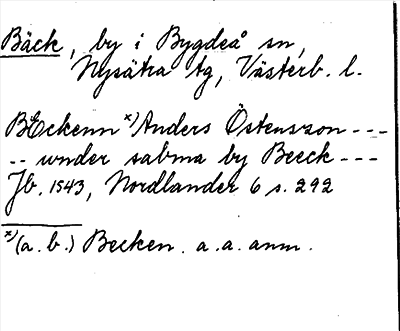 Bäck, by i Bygdeå sn,
Nysätra tg, Västerb. l.
BEckenn x) Anders Östensson ---
-- wnder sabma by Beeck ---
Jb. 1543, Nordlander 6 s. 292
x) (a. b.) Becken. a. a. anm.